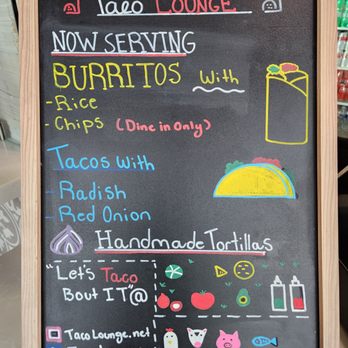 Taco LOUNGE
NOW SERVING
BURRITOS With
- Rice
- Chips (Dine in Only)
Tacos With
- Radish
- Red Onion
Handmade Tortillas
"Let's Taco
Bout IT"@
TacoLounge.net